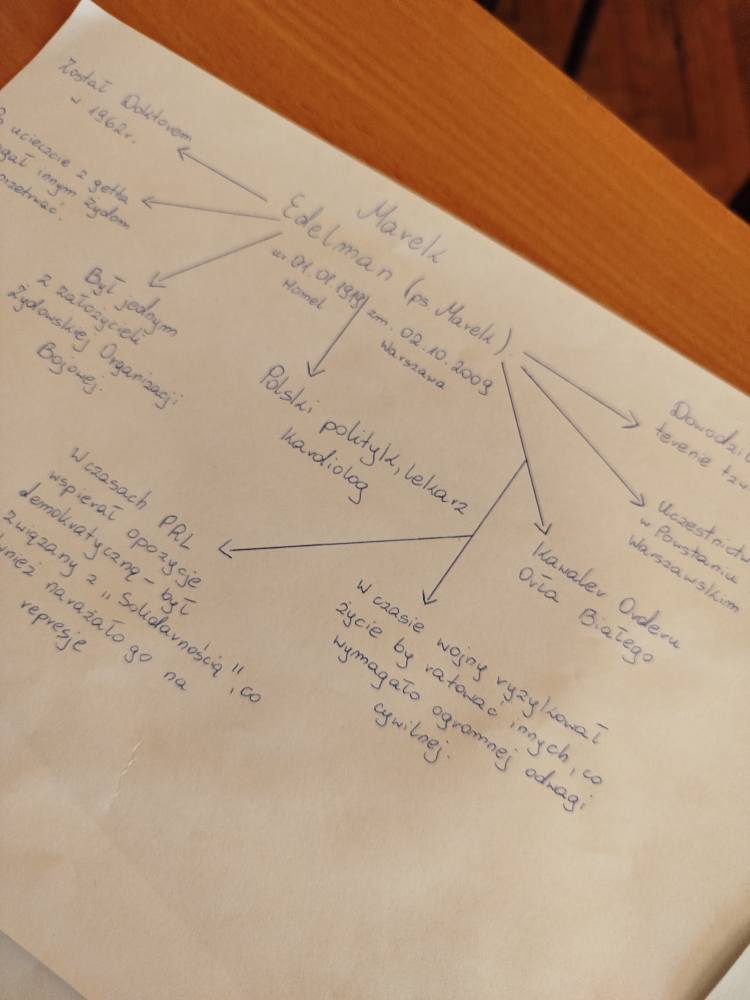 Marek
Edelman (ps Marek).
ur 01.01.1919 zm. 02.10.2009
Homel
Warszawa
Został Doktorem
w 1962r.
ucieczce z getta
innym Żydom
Był jednym
z założycieli
Żydowskiej Organizacji
Bojowej.
Polski polityk, lekarz
kardiolog
W czasach PRL
wspierał opozycje
demokratyczną - był
związany z "Solidarnością", co
narażało go na
represje
W czasie wojny ryzykował
życie by ratować innych, co
wymagało ogromnej odwagi
cywilnej.
Kawaler Orderu
Orła Białego
w Powstaniu
Warszawskim
terenie